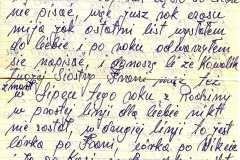 nie pisać, więc jusz rok czasu
mija jak ostatni list wysłałem
do Ciebie i, po roku odwarzyłem
się napisać, i donoszę Ci że Kowalik
twojej Siostry Frani mąż też
zmarł w Lipcu tego roku z Rodziny
w prostej linji dla Ciebie nikt
nie został, w drugiej linji to jest
córka po Frani, córka po Wikcie